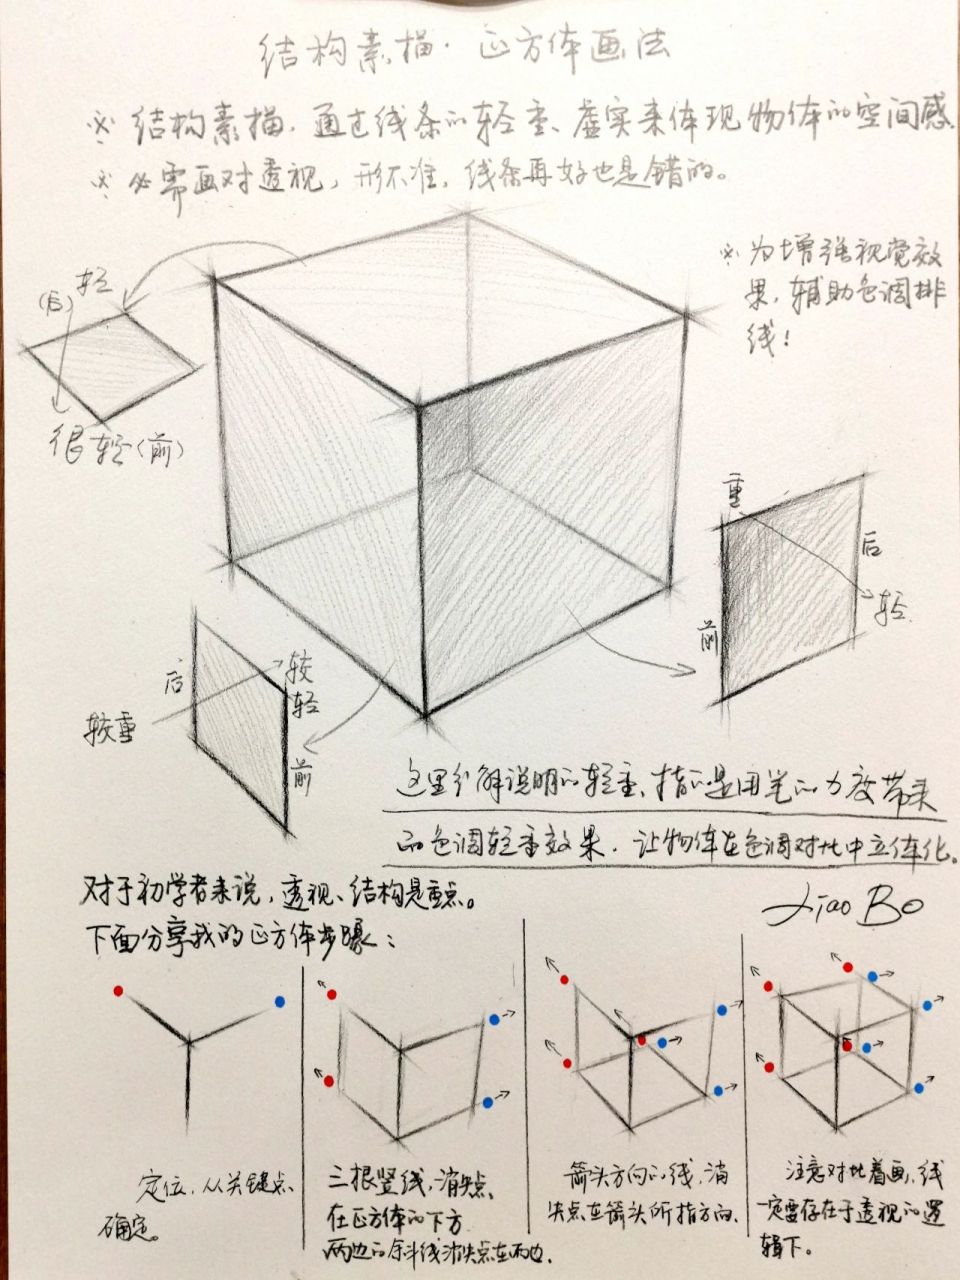 结构素描·正方体画法
※结构素描.通过线条的轻重、虚实来体现物体的空间感
※必需画对透视，形不准，线条再好也是错的。
※为增强视觉效
果，辅助色调排
线！
轻
(后)
很轻(前)
重
后
前
轻
后
较
轻
较重
前
这里分解说明的轻重、指的是用笔的力度带来
的色调轻重效果．让物体在色调对比中立体化。
对于初学者来说，透视、结构是重点。
Liao Bo
下面分享我的正方体步骤：
定位．从关键点
确定。
三根竖线，消失点
在正方体的下方
两边的斜线消失点在两边．
箭头方向的线，消
失点在箭头所指方向．
注意对比着画，线
一定要存在于透视的逻
辑下。